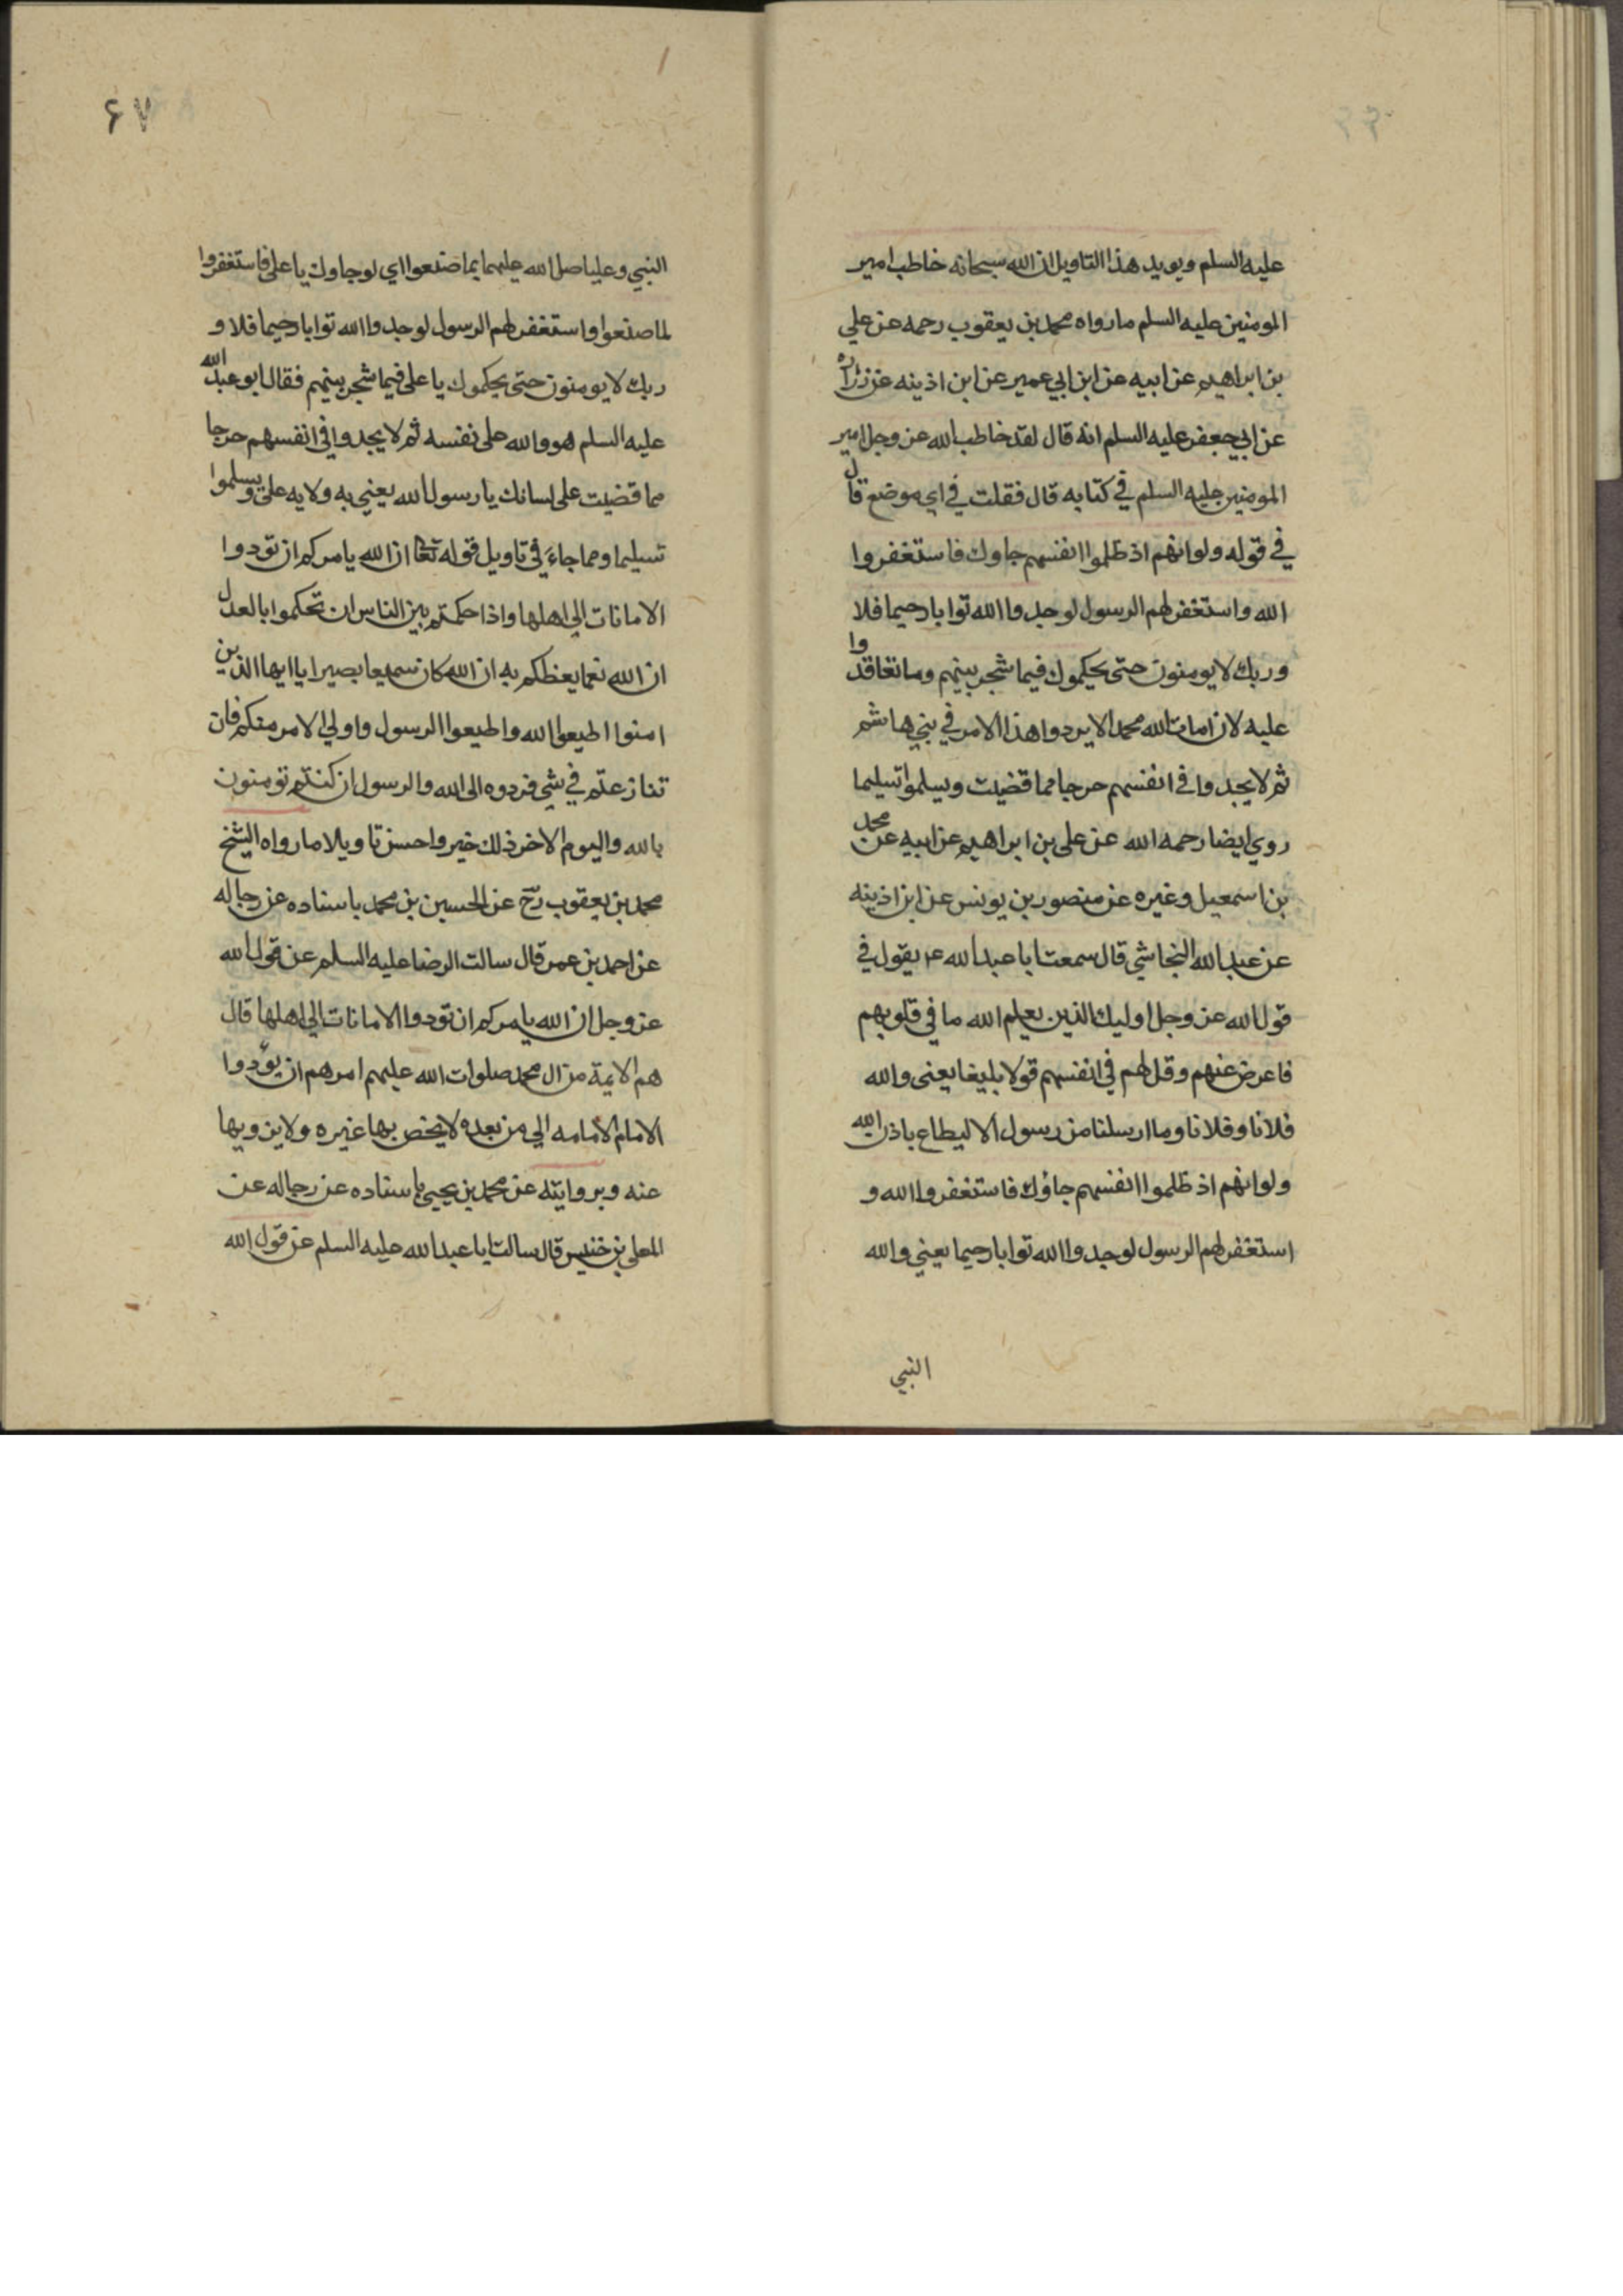 عليه السلم ويويد هذا التاويل ان الله سبحانه خاطب امير
المومنين عليه السلم ما رواه محمد بن يعقوب رحمه عن علي
بن ابراهيم عن ابيه عن ابن ابي عمير عن ابن اذينه عن زراره
عن ابي جعفر عليه السلم انه قال لقد خاطب الله عز وجل امير
المومنين عليه السلم في كتابه قال فقلت في اي موضع قال
في قوله ولو انهم اذ ظلموا انفسهم جاوك فاستغفروا
الله واستغفر لهم الرسول لوجدوا الله توابا رحيما فلا
وربك لا يومنون حتى يحكموك فيما شجر بينهم وما تعاقدوا
عليه لان امات الله محمد الا يردوا هذا الامر في بني هاشم
ثم لا يجدوا في انفسهم حرجا مما قضيت ويسلموا تسليما
روي ايضا رحمه الله عن علي بن ابراهيم عن ابيه عن محمد
بن اسمعيل وغيره عن منصور بن يونس عن ابن اذينه
عن عبد الله النجاشي قال سمعت ابا عبد الله ع يقول في
قول الله عز وجل اوليك الذين يعلم الله ما في قلوبهم
فاعرض عنهم وقل لهم في انفسهم قولا بليغا يعني والله
فلانا وفلانا وما ارسلنا من رسول الا ليطاع باذن الله
ولو انهم اذ ظلموا انفسهم جاؤك فاستغفروا الله و
استغفر لهم الرسول لوجدوا الله توابا رحيما يعني والله
النبي
۶۷
النبي وعليا صلى الله عليهما بما صنعوا اي لو جاوك يا علي فاستغفروا
لما صنعوا واستغفر لهم الرسول لوجدوا الله توابا رحيما فلا و
ربك لا يومنون حتى يحكموك يا علي فيما شجر بينهم فقال ابو عبد الله
عليه السلم هو والله علي نفسه ثم لا يجدوا في انفسهم حرجا
مما قضيت على لسانك يا رسول الله يعني به ولايه علي ويسلموا
تسليما ومما جاء في تاويل قوله تعا ان الله يامركم ان تودوا
الامانات الي اهلها واذا حكمتم بين الناس ان تحكموا بالعدل
ان الله نعما يعظكم به ان الله كان سميعا بصيرا يا ايها الذين
امنوا اطيعوا الله واطيعوا الرسول واولي الامر منكم فان
تنازعتم في شي فردوه الى الله والرسول ان كنتم تومنون
بالله واليوم الاخر ذلك خير واحسن تاويلا ما رواه الشيخ
محمد بن يعقوب رح عن الحسين بن محمد باسناده عن رجاله
عن احمد بن عمر قال سالت الرضا عليه السلم عن قول الله
عز وجل ان الله يامركم ان تودوا الامانات الي اهلها قال
هم الايمة من ال محمد صلوات الله عليهم امرهم ان يؤدوا
الامام الامامه الي من بعده لا يخص بها غيره ولا يزويها
عنه وبروايته عن محمد بن يحيي باسناده عن رجاله عن
المعلى بن خنيس قال سالت ابا عبد الله عليه السلم عن قول الله